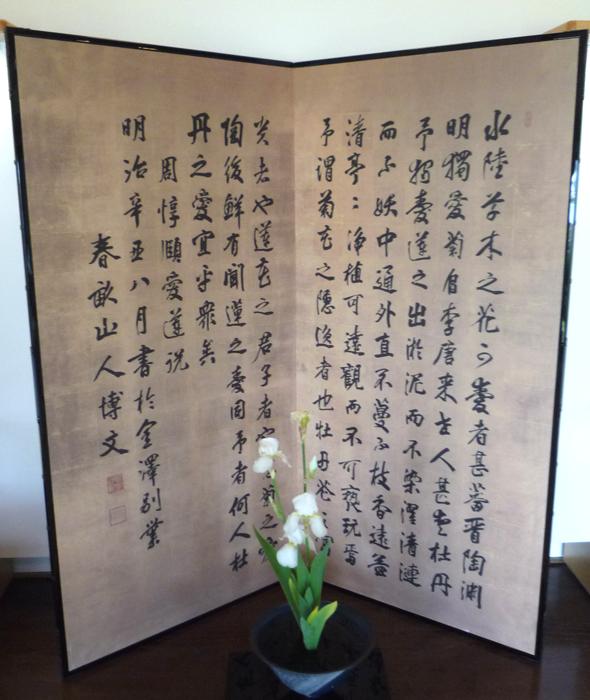 水陸草木之花可愛者甚蕃晋陶渊
明獨愛菊自李唐来世人甚愛牡丹
予独愛蓮之出淤泥而不染濯清漣
而不妖中通外直不蔓不枝香遠益
清亭〻浄植可遠觀而不可褻玩焉
予謂菊花之隠逸者也牡丹花
貴者也蓮花之君子者菊之愛
陶後鮮有聞蓮之愛同予者何人牡
丹之愛宜乎衆矣
周惇頤愛蓮説
明治辛丑八月書於金澤別業
春畝山人博文